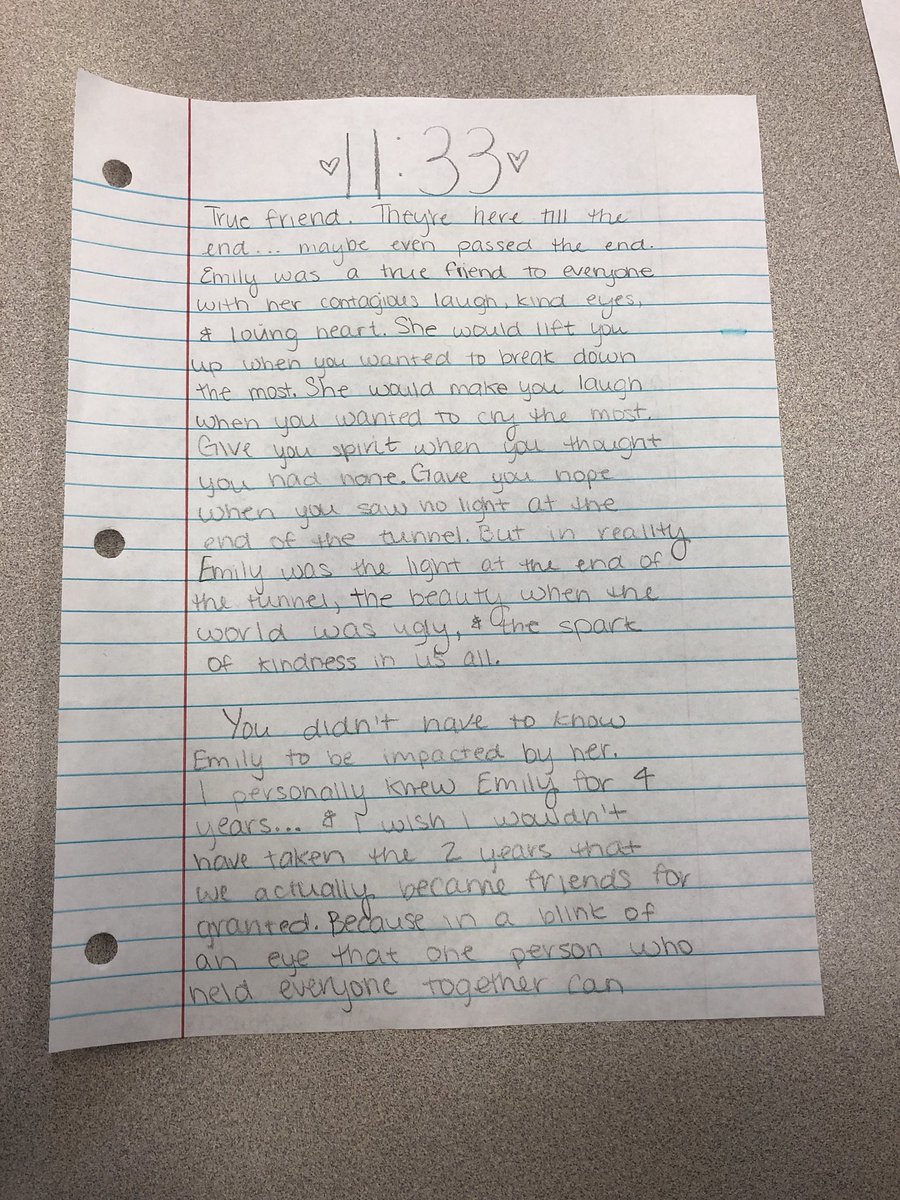 ♡11:33♡
True friend. They're here till the
end... maybe even passed the end.
Emily was a true friend to everyone
with her contagious laugh, kind eyes,
& loving heart. She would lift you
up when you wanted to break down
the most. She would make you laugh
when you wanted to cry the most.
Give you spirit when you thought
you had none. Gave you hope
when you saw no light at the
end of the tunnel. But in reality
Emily was the light at the end of
the tunnel, the beauty when the
world was ugly, & the spark
of kindness in us all.
You didn't have to know
Emily to be impacted by her.
I personally knew Emily for 4
years... & I wish I wouldn't
have taken the 2 years that
we actually became friends for
granted. Because in a blink of
an eye that one person who
held everyone together can